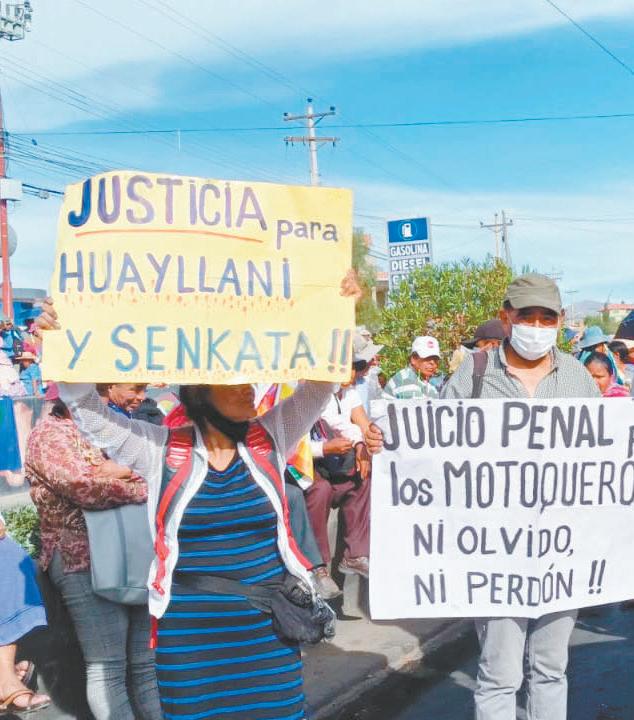 JUSTICIA para
HUAYLLANI
Y SENKATA !!
GASOLINA
DIESEL
JUICIO PENAL
los MOTOQUERO
NI OLVIDO,
NI PERDÓN !!